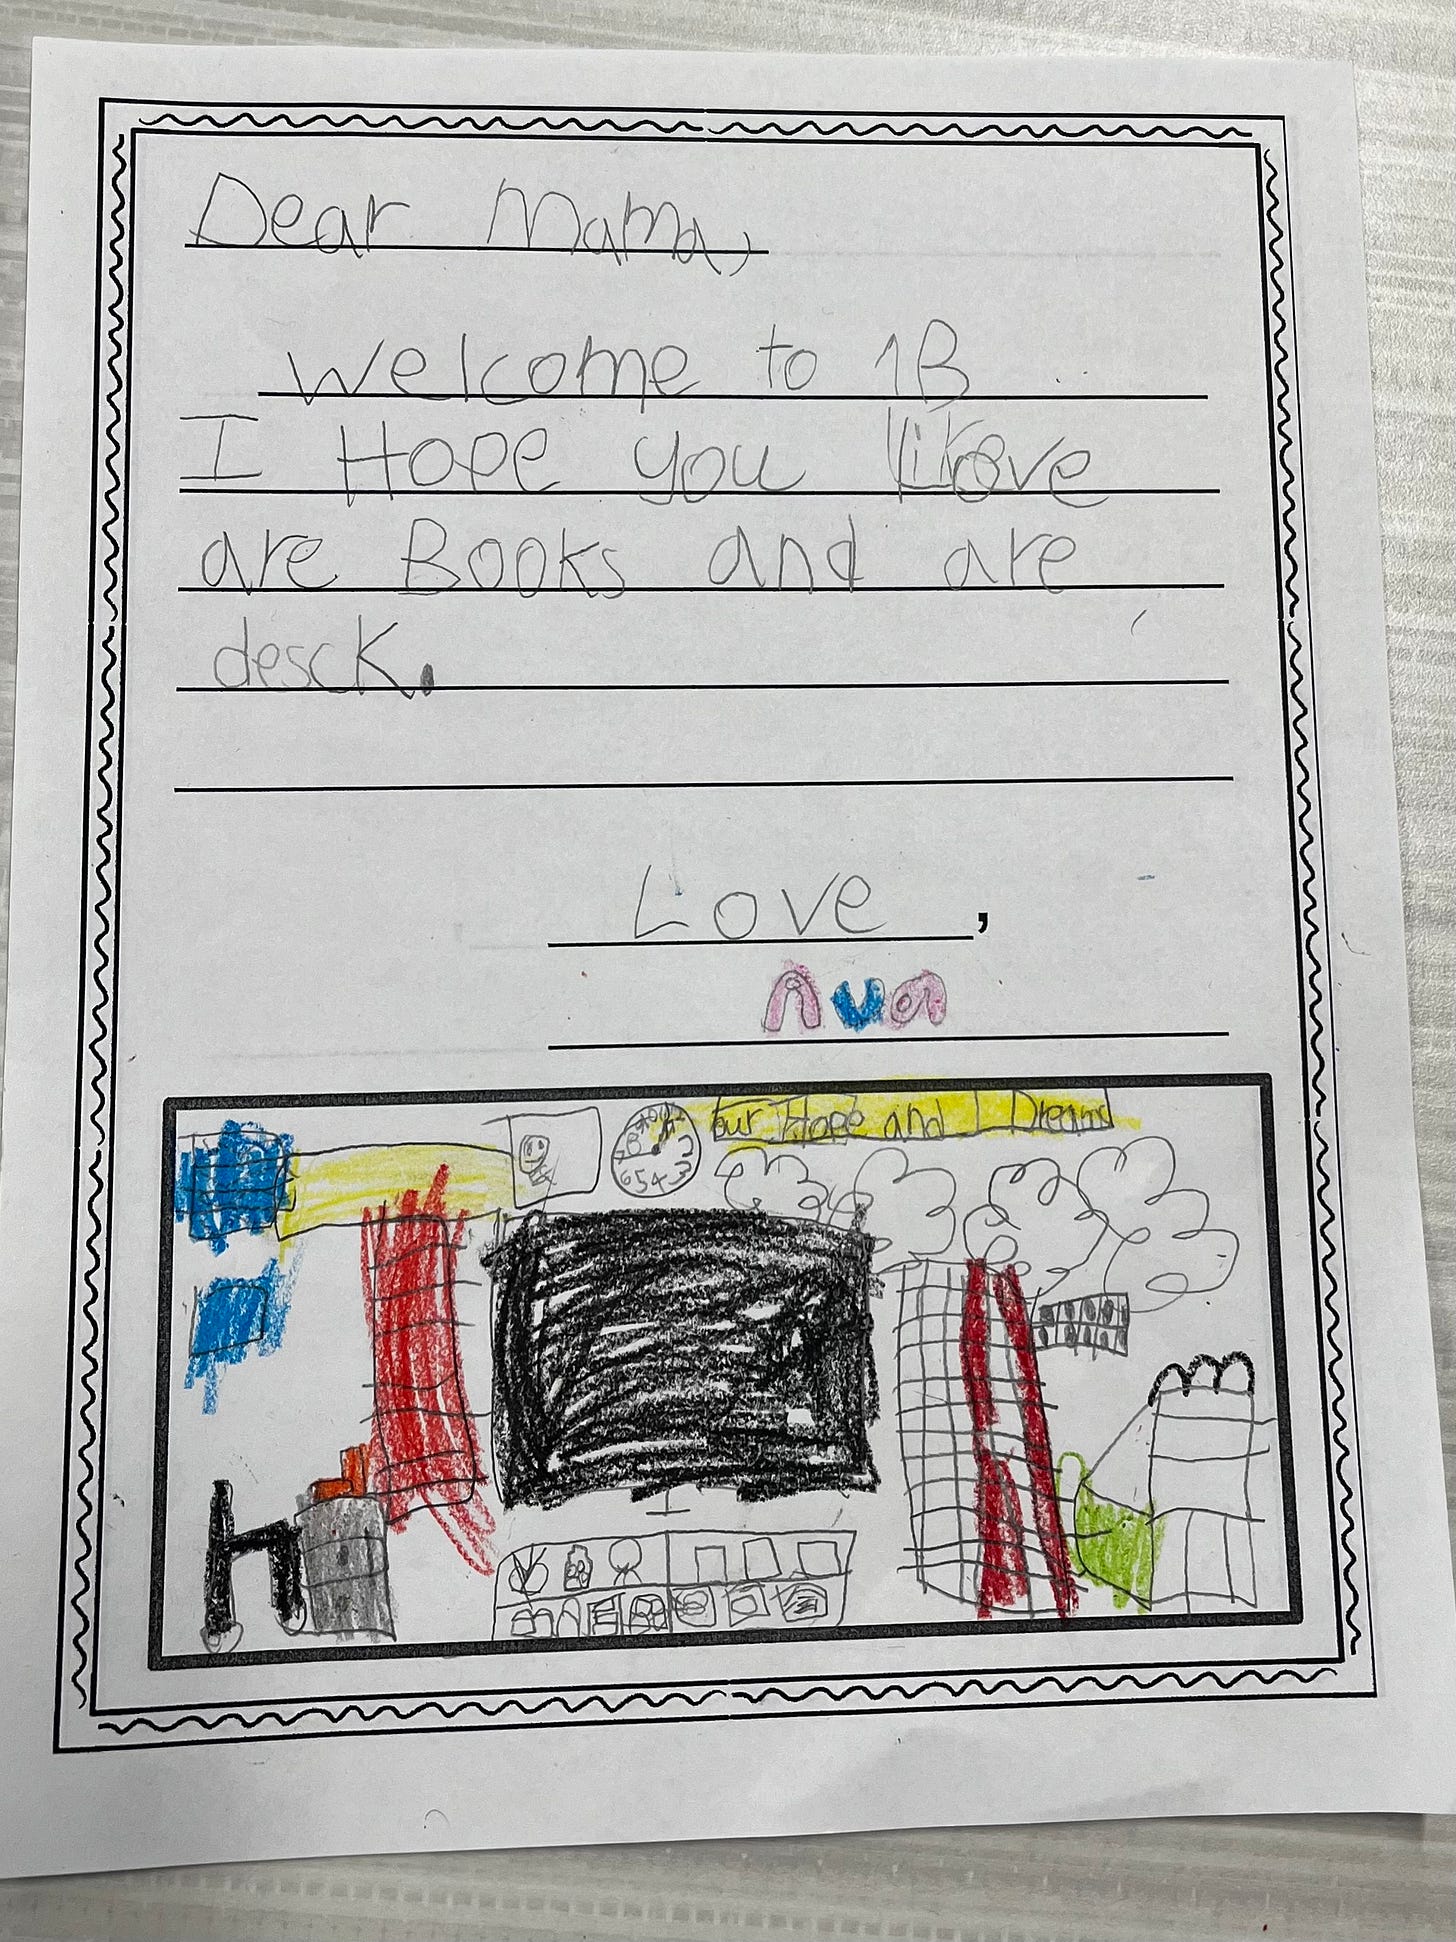 Dear Mama,
Welcome to 1B
I Hope you love
are Books and are
desck.
Love,
Ava
our Hope and Dreams